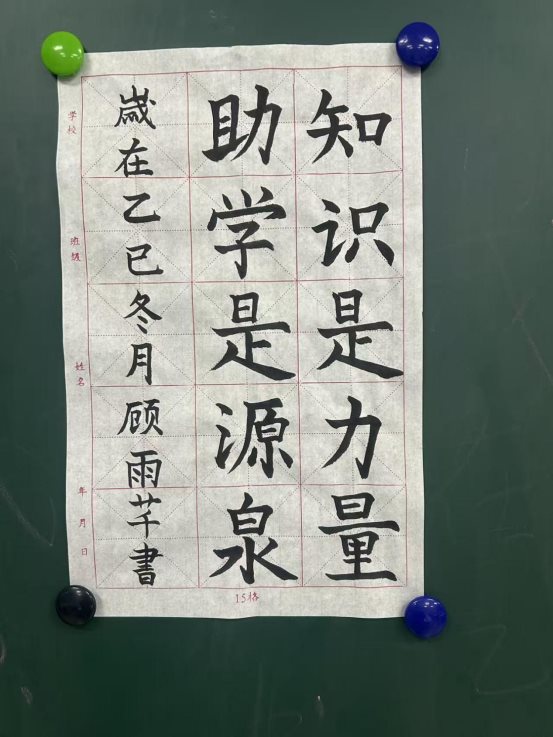 知识是力量
助学是源泉
歲在乙巳冬月顾雨芊書
学校
班级
姓名
年月日
15格